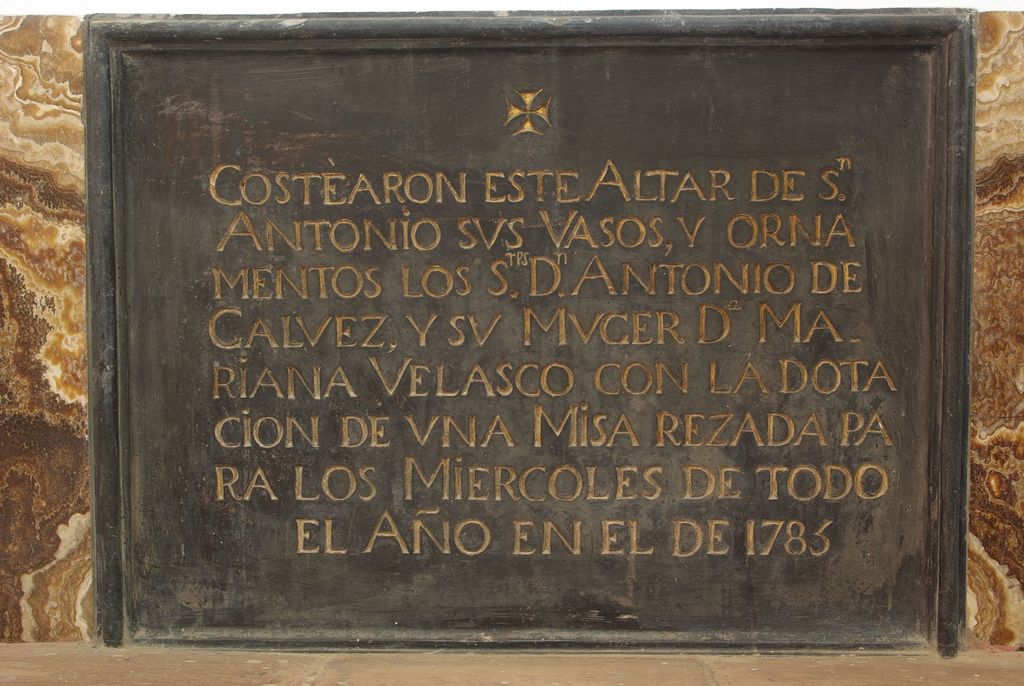 COSTÈARON ESTE ALTAR DE Sⁿ.
ANTONIO SVS VASOS, Y ORNA
MENTOS LOS Sʳᵉˢ. Dⁿ. ANTONIO DE
GALVEZ, Y SV MVGER Dᵃ MA-
RIANA VELASCO CON LA DOTA
CION DE VNA MISA REZADA PA
RA LOS MIERCOLES DE TODO
EL AÑO EN EL DE 1785